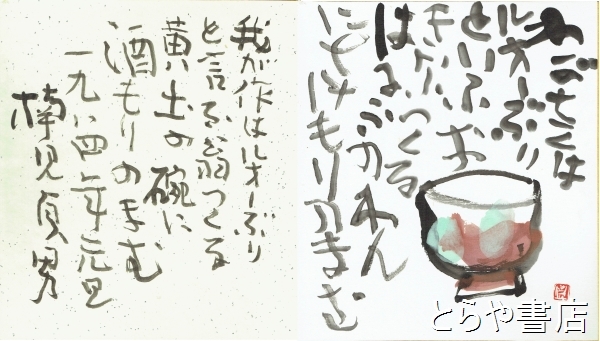 わがさくは
ルオーぶり
といふお
きなつくる
はにふのわん
にさけもりのまむ
我が作はルオーぶり
と言ふ翁つくる
黄土の碗に
酒もりのまむ
一九八四年元旦
貞男
とらや書店